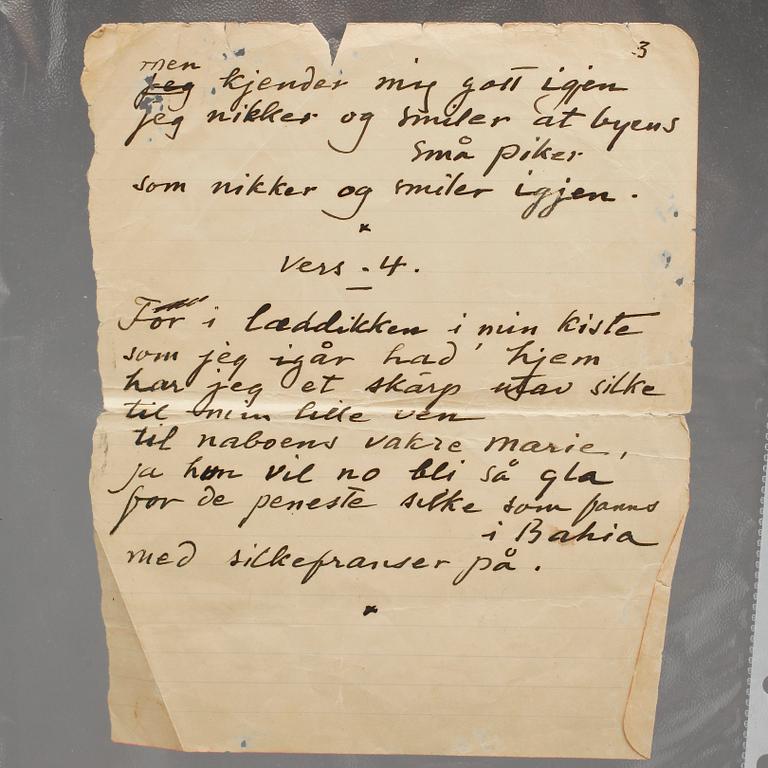 3
men
jeg kjender mig gott igjen
jeg nikker og smiler åt byens
små piker
som nikker og smiler igjen.
*
Vers. 4.
For i læddikken i min kiste
som jeg igår had' hjem
har jeg et skärp utav silke
til min lille ven
til naboens vakre Marie,
ja hun vil no bli så gla
for de peneste silke som fanns
i Bahia
med silkefranser på.
*